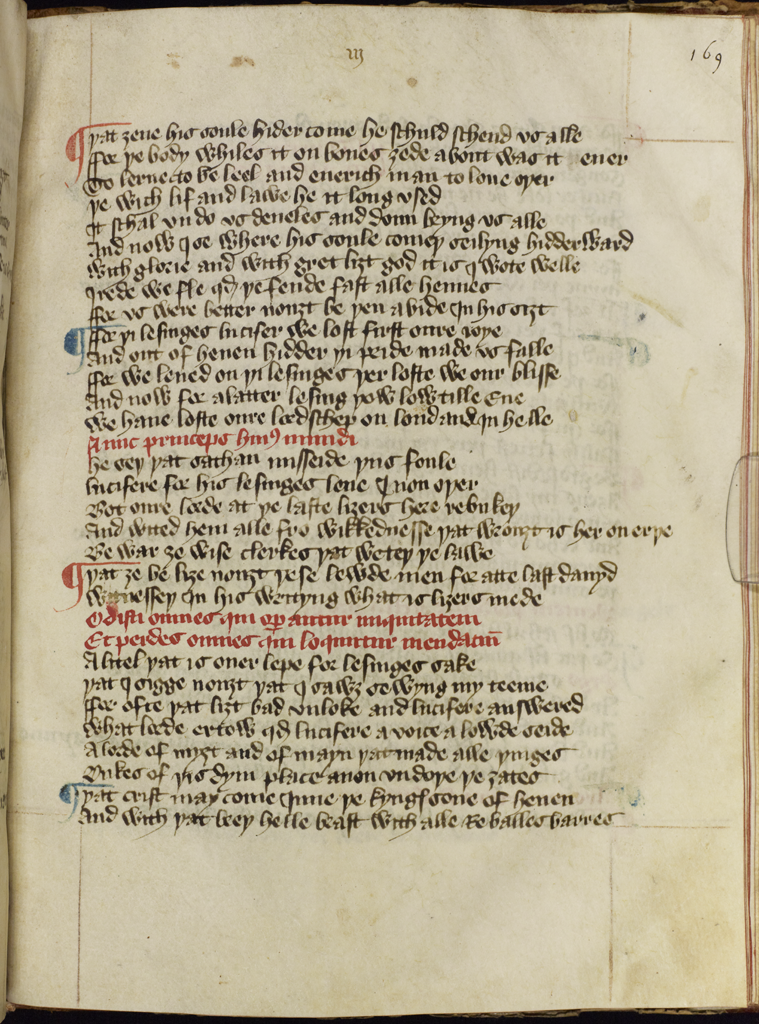 iij
169
Þat ȝeue his soule hider come he schuld schend vs alle
ffor þe body whiles it on bones ȝede about was it euer
To lerne to be leel and euerich man to loue oþer
þe wich lif and lawe he it long vsed
It schal vndo vs deueles and doun bryng vs alle
And now I se where his soule comeþ seilyng hidderward
with glorie and with gret liȝt god it is I wote welle
I rede we fle qd þe fende fast alle hennes
ffor vs were better nouȝt be þen abide in his siȝt
ffor þi lesinges lucifer we lost first oure ioye
And out of heuen hidder þi pride made vs falle
ffor we leued on þi lesinges þer loste we our blisse
And now for a latter lesing þow low tille Eue
we haue loste oure lordschep on lond and in helle
Nunc princeps huius mundi
he sey þat sathan misseide þus foule
lucifere for his lesinges leue I non oþer
Bot oure lorde at þe laste liȝers here rebukeþ
And wited hem alle fro wikkednesse þat wrouȝt is her on erþe
Be war ȝe wise clerkes þat weteþ þe lawe
Þat ȝe be liȝe nouȝt þese lewde men for atte last dauyd
witnesseþ in his writyng what is liȝers mede
Odisti omnes qui operantur iniquitatem
Et perdes omnes qui loquntur mendaciū
A litel þat is ouer lepe for lesinges sake
þat I sigge nouȝt þat I sawȝ sewyng my teeme
ffor ofte þat liȝt bad vnloke and lucifere answered
what lorde ertow qd lucifere a voice a lowde seide
A lorde of myȝt and of mayn þat made alle þinges
Dukes of þis dym place anon vndoþe þe ȝates
Þat crist may come Inne þe kynges sone of heuen
And with þat breþ helle brast with alle Re balles barres